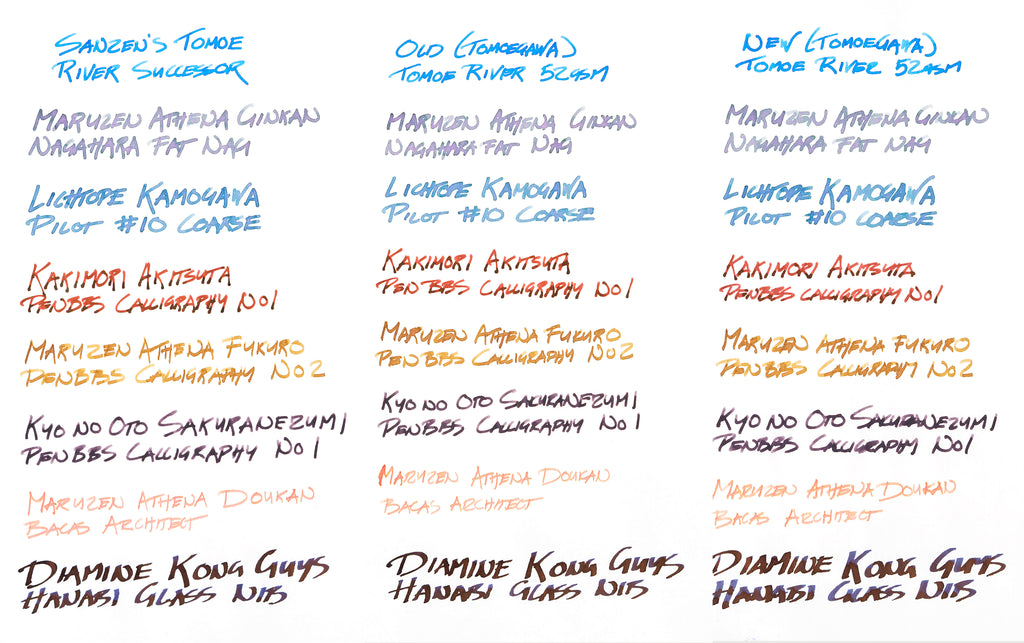 SANZEN'S TOMOE
RIVER SUCCESSOR
MARUZEN ATHENA GINKAN
NAGAHARA FAT NAG
LICHTOPE KAMOGAWA
PILOT #10 COARSE
KAKIMORI AKITSUTA
PENBBS CALLIGRAPHY NO1
MARUZEN ATHENA FUKURO
PENBBS CALLIGRAPHY NO2
KYO NO OTO SAKURANEZUMI
PENBBS CALLIGRAPHY NO1
MARUZEN ATHENA DOUKAN
BACAS ARCHITECT
DIAMINE KONG GUYS
HANABI GLASS NIB
OLD (TOMOEGAWA)
TOMOE RIVER 52GSM
MARUZEN ATHENA GINKAN
NAGAHARA FAT NAG
LICHTOPE KAMOGAWA
PILOT #10 COARSE
KAKIMORI AKITSUTA
PENBBS CALLIGRAPHY NO1
MARUZEN ATHENA FUKURO
PENBBS CALLIGRAPHY NO2
KYO NO OTO SAKURANEZUMI
PENBBS CALLIGRAPHY NO1
MARUZEN ATHENA DOUKAN
BACAS ARCHITECT
DIAMINE KONG GUYS
HANABI GLASS NIB
NEW (TOMOEGAWA)
TOMOE RIVER 52GSM
MARUZEN ATHENA GINKAN
NAGAHARA FAT NAG
LICHTOPE KAMOGAWA
PILOT #10 COARSE
KAKIMORI AKITSUTA
PENBBS CALLIGRAPHY NO1
MARUZEN ATHENA FUKURO
PENBBS CALLIGRAPHY NO2
KYO NO OTO SAKURANEZUMI
PENBBS CALLIGRAPHY NO1
MARUZEN ATHENA DOUKAN
BACAS ARCHITECT
DIAMINE KONG GUYS
HANABI GLASS NIB